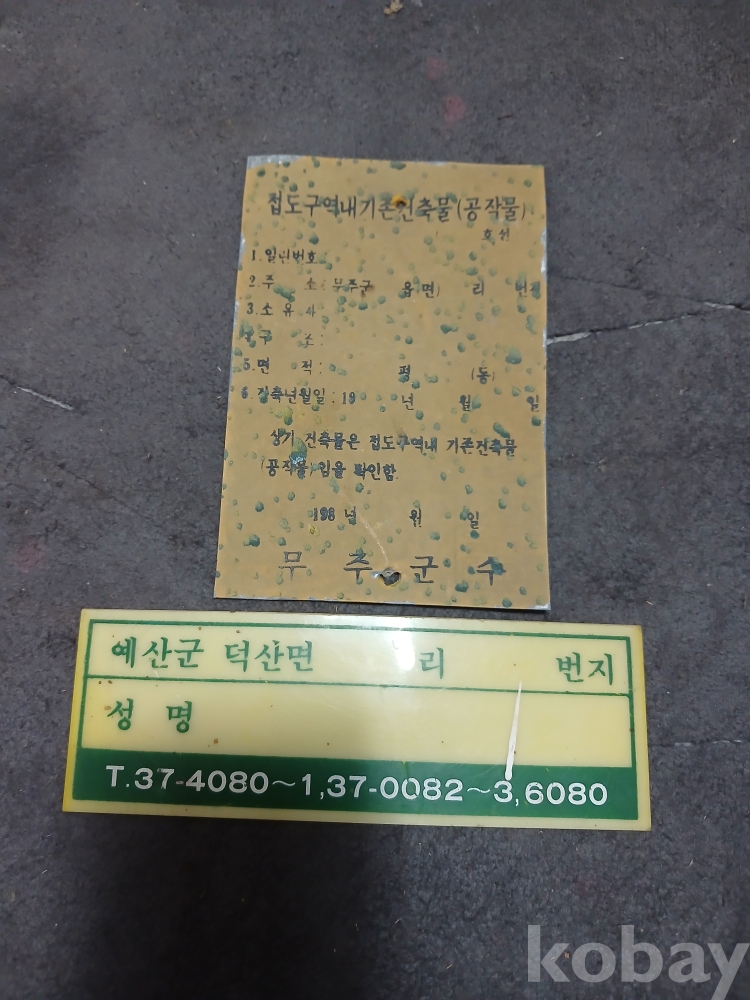 접도구역내기존건축물(공작물)
호선
1.일련번호:
2.주 소(무주군 읍(면) 리 번지
3.소유자
4.구 조:
5.면 적: 평 (동)
6.건축년월일:19 년 월 일
상기 건축물은 접도구역내 기존건축물
(공작물)임을 확인함.
198 년 월 일
무주군수
예산군 덕산면 리 번지
성 명
T.37-4080~1,37-0082~3,6080
kobay